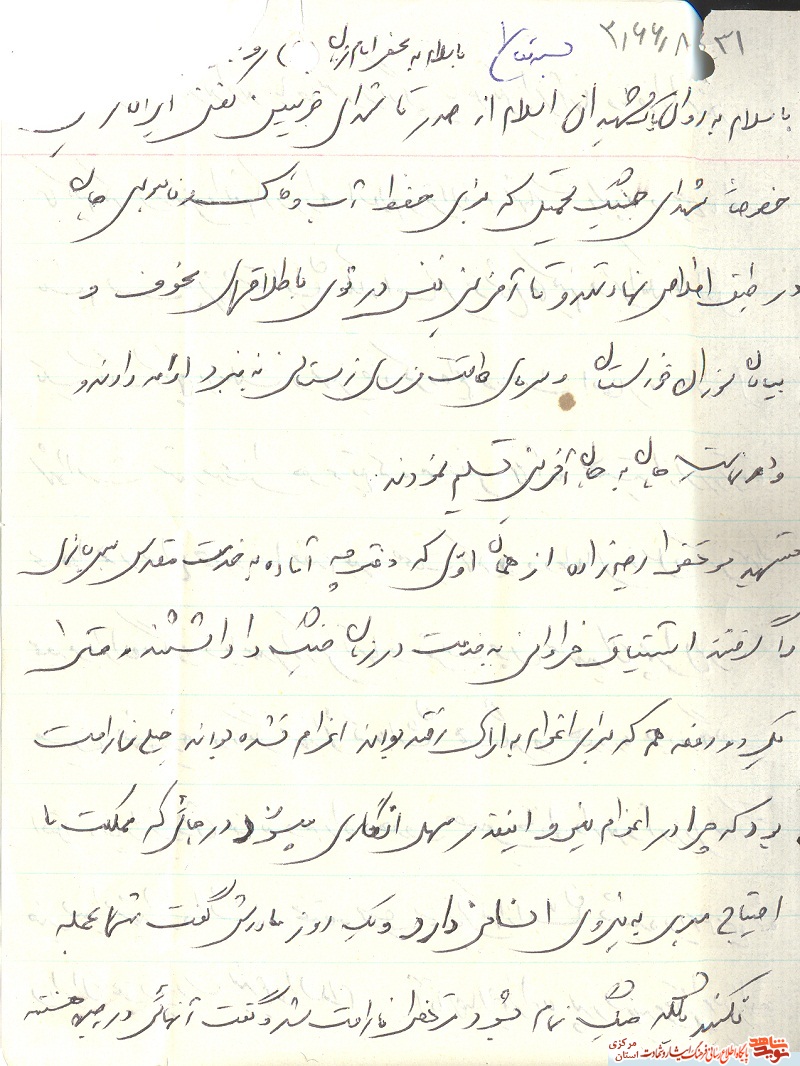 بسمه تعالی با سلام به محضر امام زمان
با سلام به روان پاک شهیدان اسلام از صدر تا شهدای
خصوصاً شهدای جنگ تحمیلی که برای حفظ آب و خاک و ناموس جان
در طبق اخلاص نهادند و تا آخرین نفس در توی باطلاقهای مخوف و
بیابان سوزان خوزستان و سرمای طاقت فرسای زمستان به نبرد ادامه دادند و
و در نهایت جان به جان آفرین تسلیم نمودند.
شهید مرتضی از همان اول که دفترچه آماده به خدمت مقدس سربازی
را گرفتند اشتیاق فراوانی به خدمت در زمان جنگ را داشتند و حتی
یکی دو دفعه هم که برای اعزام به اراک رفته بودند اعزام نشده بودند خیلی ناراحت
بود که چرا در اعزام نیرو اینقدر سهل انگاری میشود در جائی که مملکت ما
احتیاج مبرمی به نیروی انسانی دارد و یک روز مادرش گفت تنها عجله
نکنید بلکه جنگ تمام شود مرتضی ناراحت شد و گفت آنهائی در جبهه هستند
نوید شاهد
پایگاه اطلاع رسانی فرهنگ ایثار و شهادت
استان مرکزی